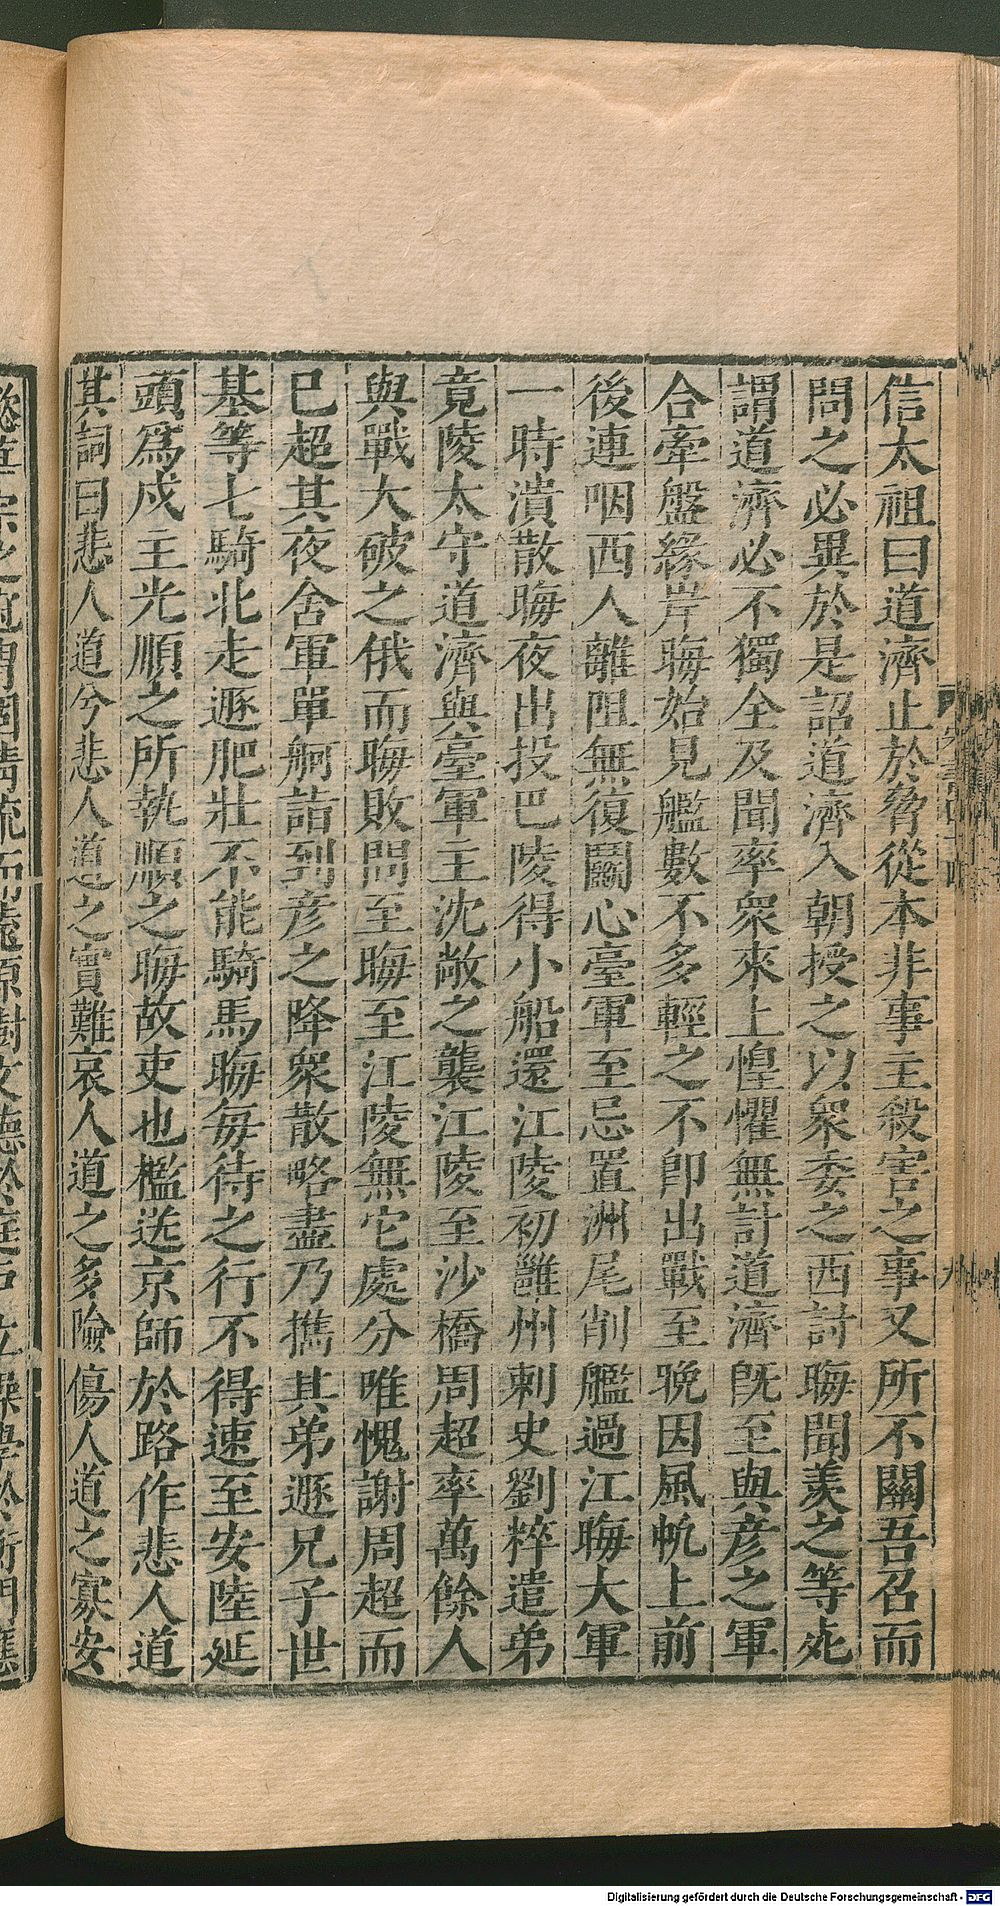 信太祖曰道濟止於脅從本非事主殺害之事又所不關吾召而
問之必異於是詔道濟入朝授之以衆委之西討晦聞羨之等死
謂道濟必不獨全及聞率衆來上惶懼無計道濟旣至與彦之軍
合牽盤緣岸晦始見艦數不多輕之不卽出戰至晚因風帆上前
後連咽西人離阻無復鬭心臺軍至忌置洲尾削艦過江晦大軍
一時潰散晦夜出投巴陵得小船還江陵初雝州刺史劉粹遣弟
竟陵太守道濟與臺軍主沈敞之襲江陵至沙橋周超率萬餘人
與戰大破之俄而晦敗問至晦至江陵無它處分唯愧謝周超而
已超其夜舍軍單舸詣到彦之降衆散略盡乃攜其弟遯兄子世
基等七騎北走遯肥壯不能騎馬晦每待之行不得速至安陸延
頭爲戍主光順之所執順之晦故吏也檻送京師於路作悲人道
其詞曰悲人道兮悲人道之實難哀人道之多險傷人道之寡安
Digitalisierung gefördert durch die Deutsche Forschungsgemeinschaft - DFG